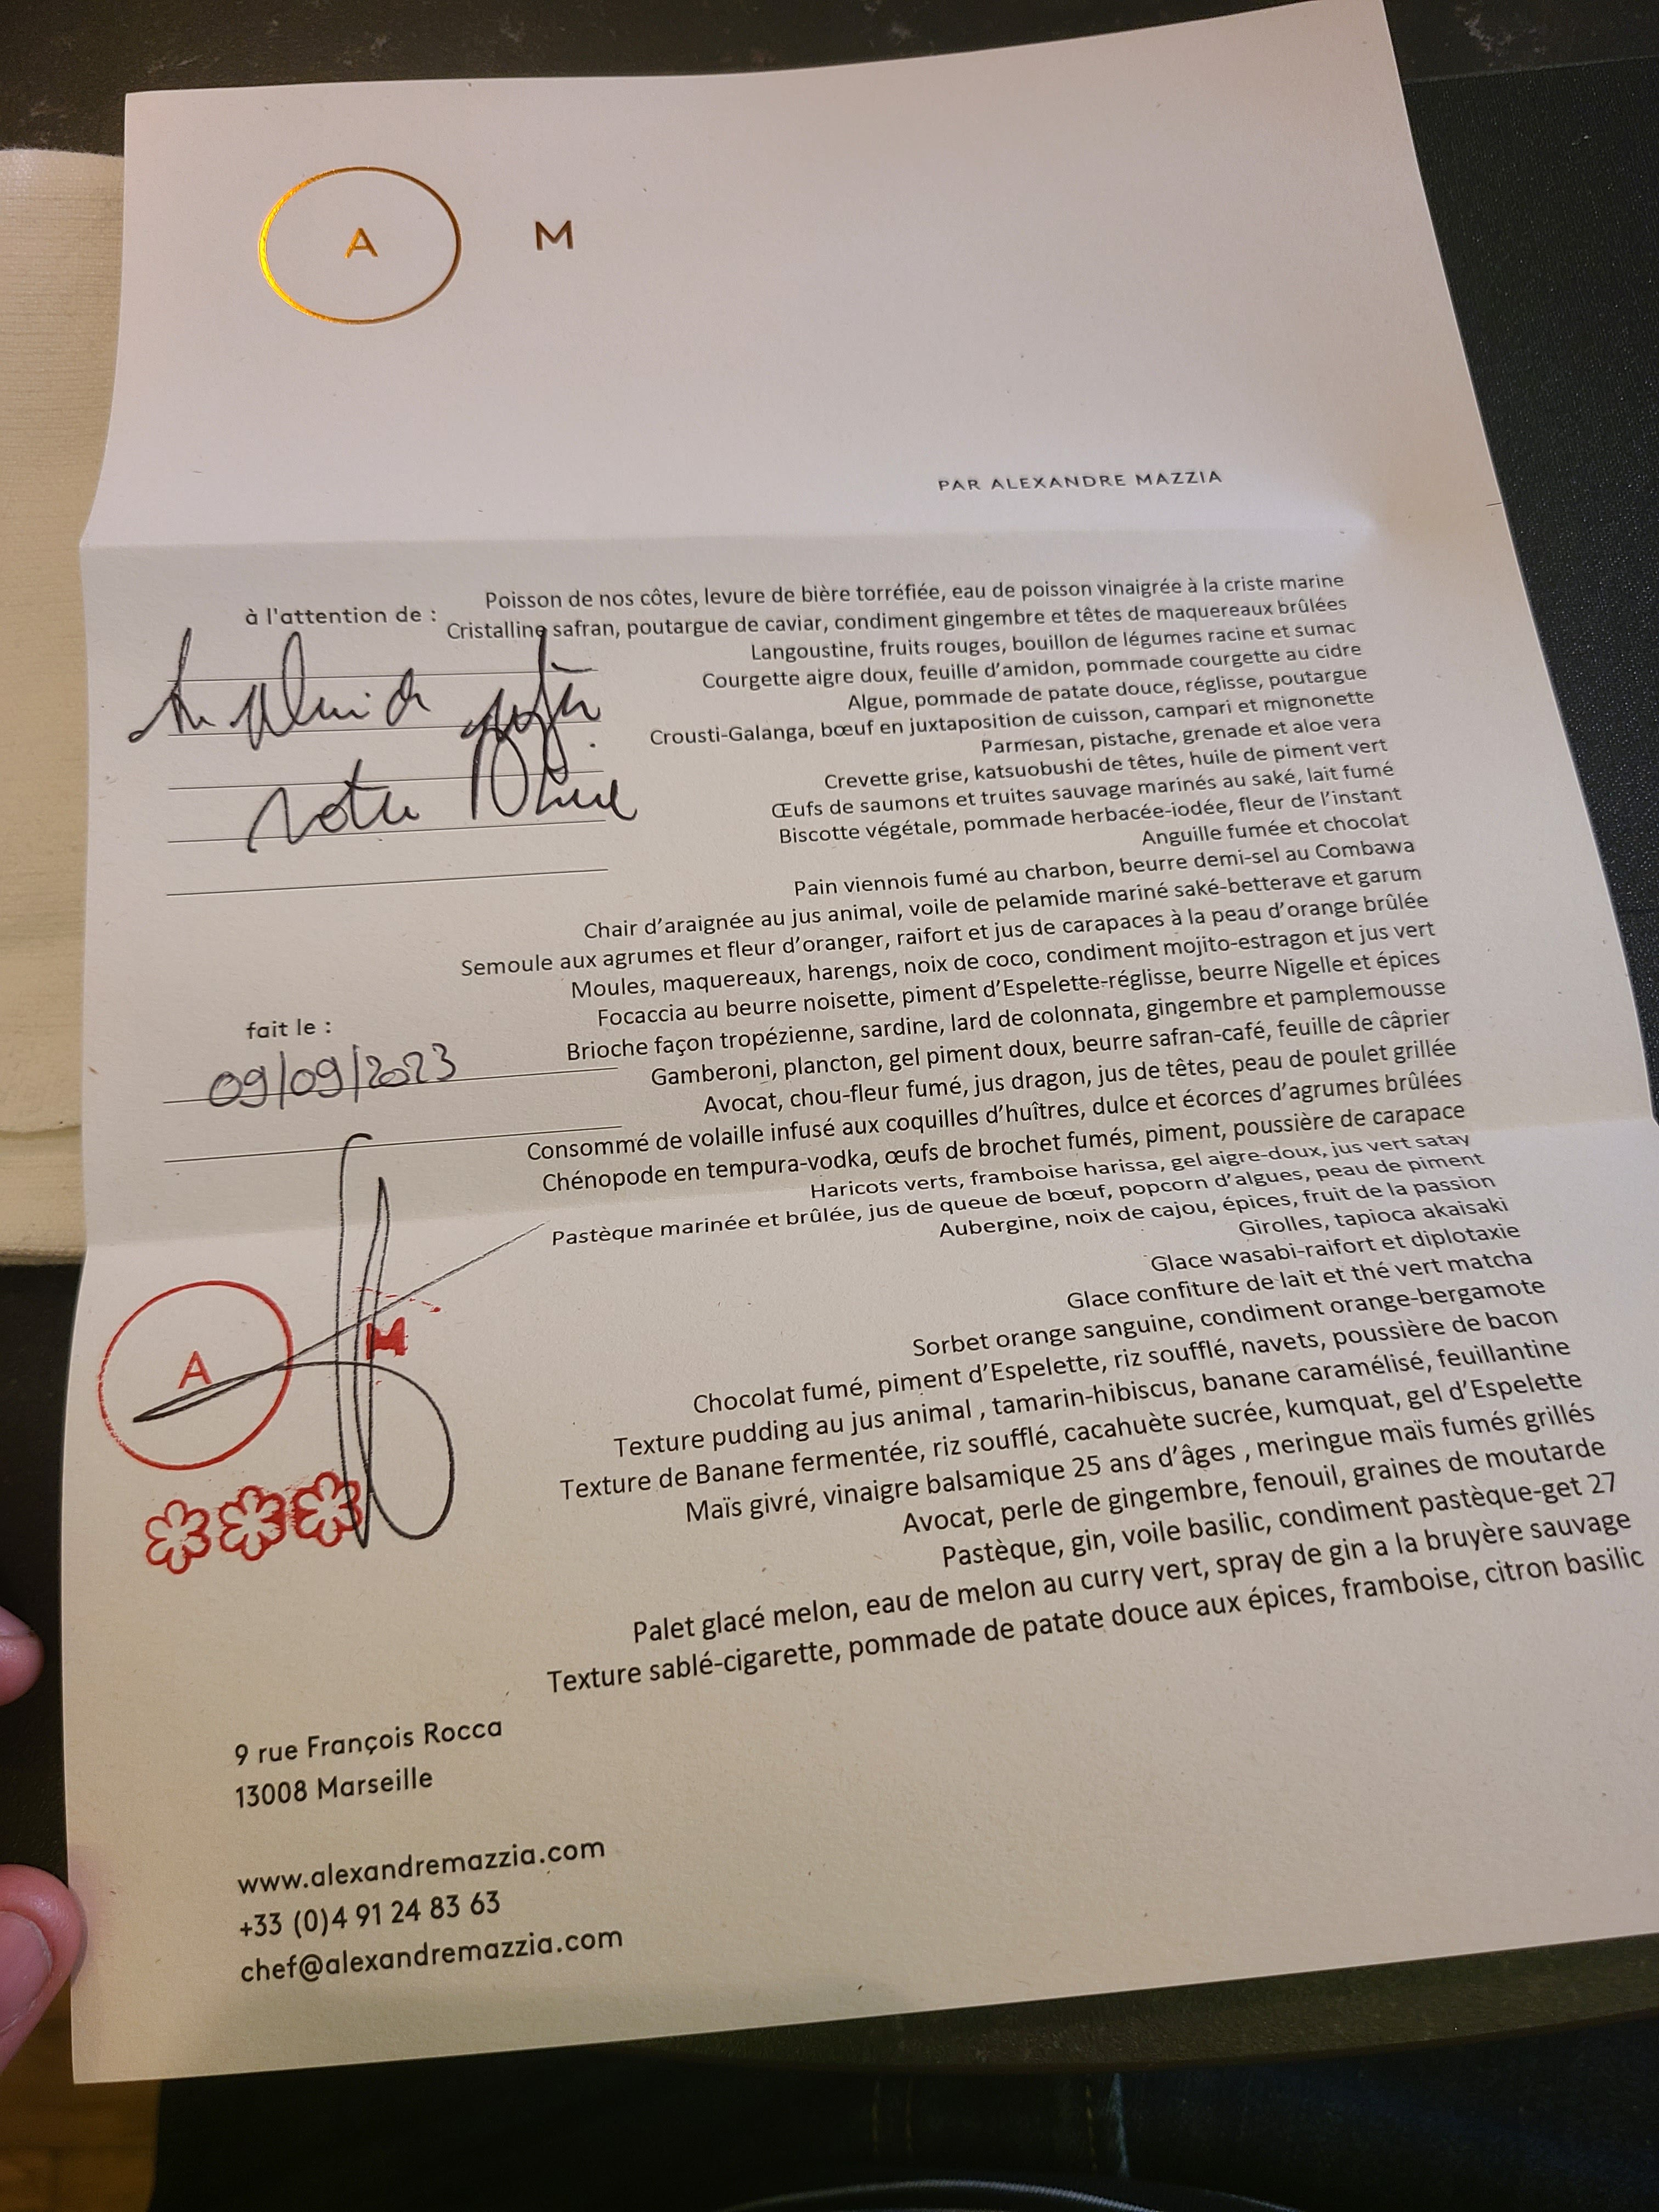 A M
PAR ALEXANDRE MAZZIA
à l'attention de :
notre
Poisson de nos côtes, levure de bière torréfiée, eau de poisson vinaigrée à la criste marine
Cristalline safran, poutargue de caviar, condiment gingembre et têtes de maquereaux brûlées
Langoustine, fruits rouges, bouillon de légumes racine et sumac
Courgette aigre doux, feuille d’amidon, pommade courgette au cidre
Algue, pommade de patate douce, réglisse, poutargue
Crousti-Galanga, bœuf en juxtaposition de cuisson, campari et mignonette
Parmesan, pistache, grenade et aloe vera
Crevette grise, katsuobushi de têtes, huile de piment vert
Œufs de saumons et truites sauvage marinés au saké, lait fumé
Biscotte végétale, pommade herbacée-iodée, fleur de l’instant
Anguille fumée et chocolat
Pain viennois fumé au charbon, beurre demi-sel au Combawa
Chair d’araignée au jus animal, voile de pelamide mariné saké-betterave et garum
Semoule aux agrumes et fleur d’oranger, raifort et jus de carapaces à la peau d’orange brûlée
Moules, maquereaux, harengs, noix de coco, condiment mojito-estragon et jus vert
Focaccia au beurre noisette, piment d’Espelette-réglisse, beurre Nigelle et épices
Brioche façon tropézienne, sardine, lard de colonnata, gingembre et pamplemousse
Gamberoni, plancton, gel piment doux, beurre safran-café, feuille de câprier
Avocat, chou-fleur fumé, jus dragon, jus de têtes, peau de poulet grillée
Consommé de volaille infusé aux coquilles d’huîtres, dulce et écorces d’agrumes brûlées
Chénopode en tempura-vodka, œufs de brochet fumés, piment, poussière de carapace
Haricots verts, framboise harissa, gel aigre-doux, jus vert satay
Pastèque marinée et brûlée, jus de queue de bœuf, popcorn d’algues, peau de piment
Aubergine, noix de cajou, épices, fruit de la passion
Girolles, tapioca akaisaki
Glace wasabi-raifort et diplotaxie
Glace confiture de lait et thé vert matcha
Sorbet orange sanguine, condiment orange-bergamote
Chocolat fumé, piment d’Espelette, riz soufflé, navets, poussière de bacon
Texture pudding au jus animal , tamarin-hibiscus, banane caramélisé, feuillantine
Texture de Banane fermentée, riz soufflé, cacahuète sucrée, kumquat, gel d’Espelette
Maïs givré, vinaigre balsamique 25 ans d’âges , meringue maïs fumés grillés
Avocat, perle de gingembre, fenouil, graines de moutarde
Pastèque, gin, voile basilic, condiment pastèque-get 27
Palet glacé melon, eau de melon au curry vert, spray de gin a la bruyère sauvage
Texture sablé-cigarette, pommade de patate douce aux épices, framboise, citron basilic
fait le :
09/09/2023
A M
9 rue François Rocca
13008 Marseille
www.alexandremazzia.com
+33 (0)4 91 24 83 63
chef@alexandremazzia.com